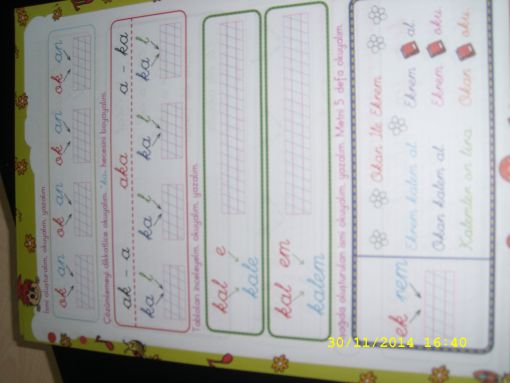 İsmi oluşturalım, okuyalım, yazalım.
ok an ok an ok an ok an
Çözümlemeyi dikkatlice okuyalım. "ka" hecesini boyayalım.
ak - a aka a - ka
ka l ka l ka l ka l
Tabloları inceleyelim, okuyalım, yazalım.
kal e
kale
kal em
kalem
Aşağıda oluşturulan ismi okuyalım, yazalım. Metni 5 defa okuyalım.
ek rem
Okan ile Ekrem
Ekrem kalem al. Ekrem al.
Okan kalem al. Ekrem oku.
Kalemler on lira. Okan oku.
30/11/2014 16:40